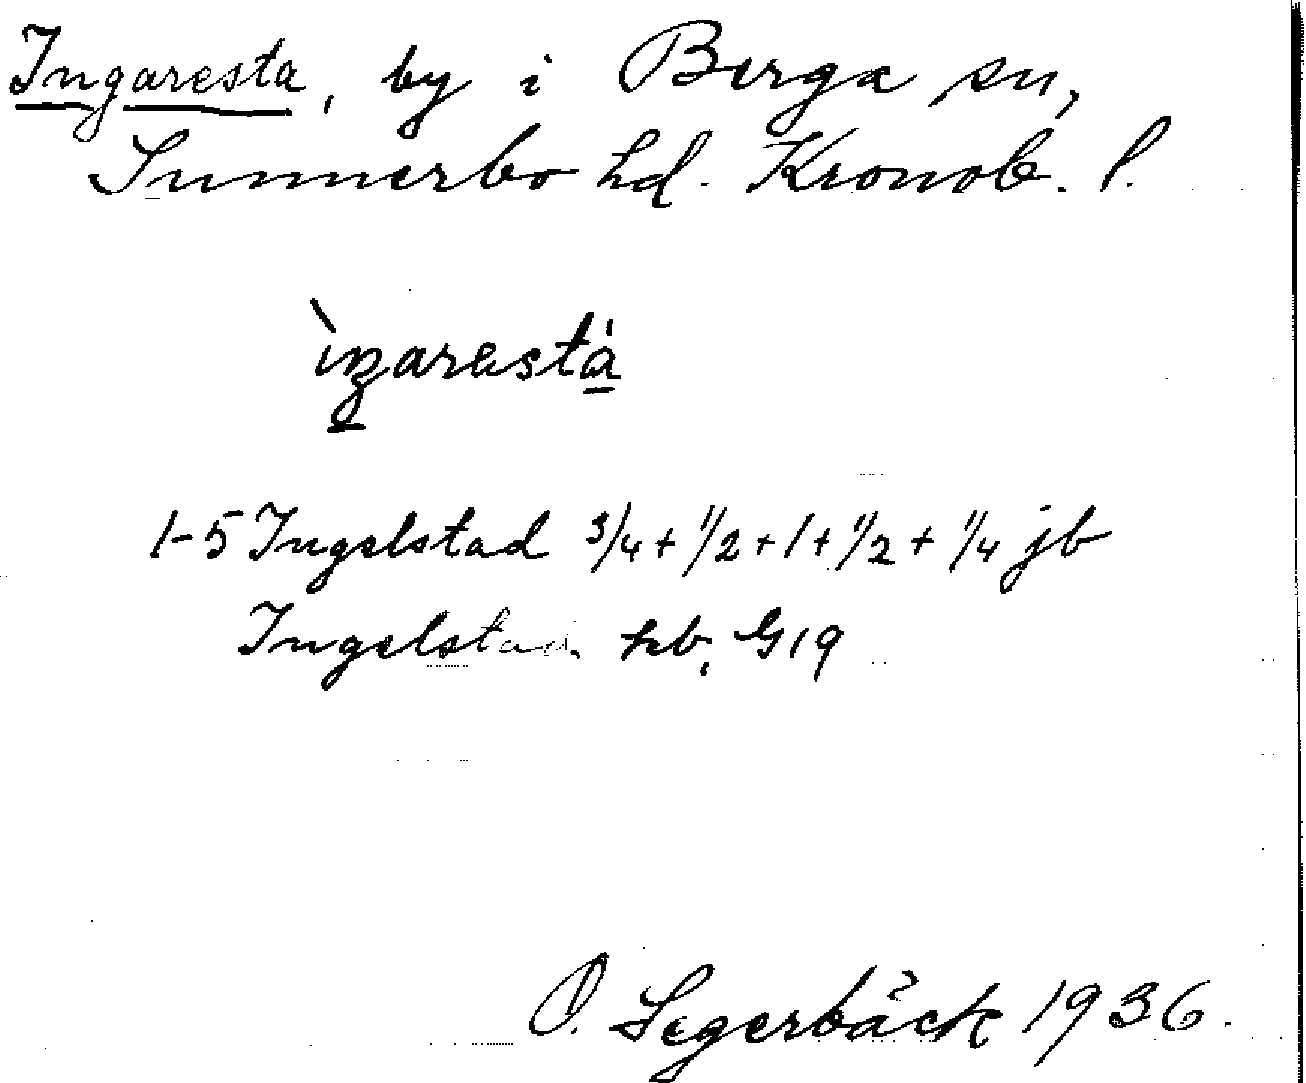 Ingaresta, by i Berga sn,
Sunnerbo hd. Kronob. l.
ìŋarestá
1-5 Ingelstad 3/4 + 1/2 + 1 + 1/2 + 1/4 jb
Ingelstad hb, G19
O. Segerbäck 1936.